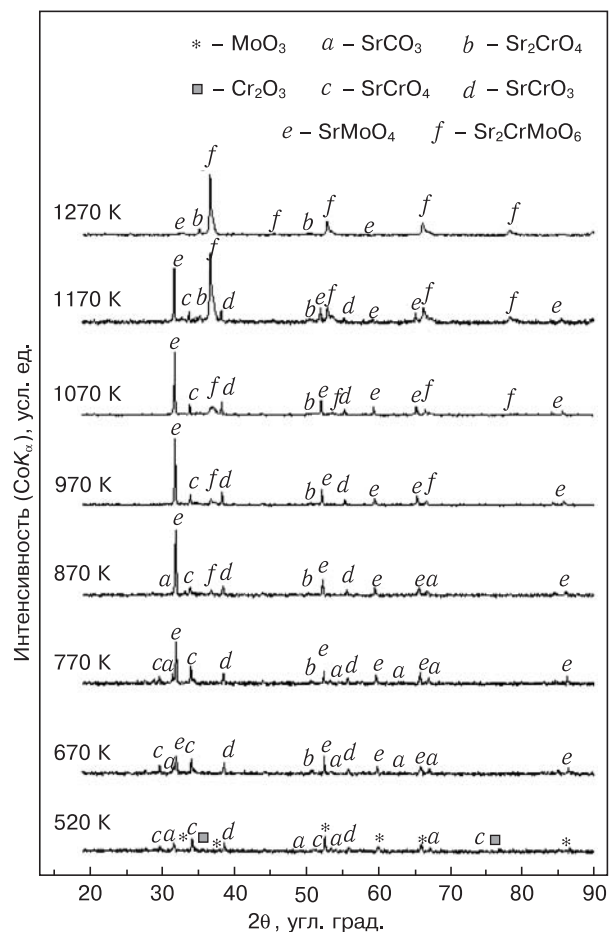 * – MoO₃ a – SrCO₃ b – Sr₂CrO₄
■ – Cr₂O₃ c – SrCrO₄ d – SrCrO₃
e – SrMoO₄ f – Sr₂CrMoO₆
Интенсивность (CoKα), усл. ед.
1270 K
e b f f b f e f f
1170 K
e c b f d b e f d e e f f e
1070 K
e c f d b e f d e e f f e
970 K
e c f d b e d e e f e
870 K
a e c f d b e d e e a e
770 K
c a e c d b e a d e a e a e
670 K
c a e c d b e a d e a e a e
520 K
c a * c ■ * d a c * a d * * a c ■ *
20 30 40 50 60 70 80 90
2θ, угл. град.